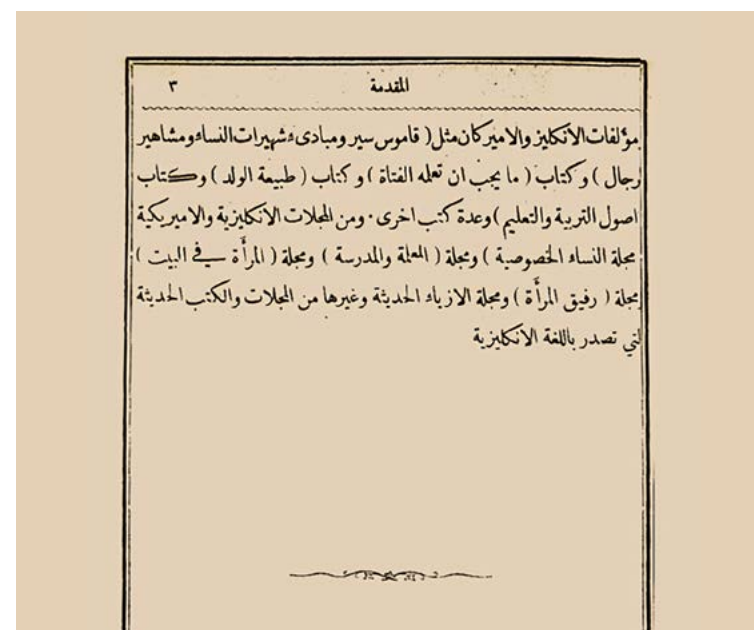 المقدمة ٣
مؤلفات الانكليز والاميركان مثل ( قاموس سير ومبادىء شهيرات النساء ومشاهير
رجال ) وكتاب ( ما يجب ان تعلمه الفتاة ) وكتاب ( طبيعة الولد ) وكتاب
اصول التربية والتعليم ) وعدة كتب اخرى ٠ ومن المجلات الانكليزية والاميريكية
مجلة النساء الخصوصية ) ومجلة ( المعلمة والمدرسة ) ومجلة ( المرأة في البيت )
مجلة ( رفيق المرأة ) ومجلة الازياء الحديثة وغيرها من المجلات والكتب الحديثة
لتي تصدر باللغة الانكليزية